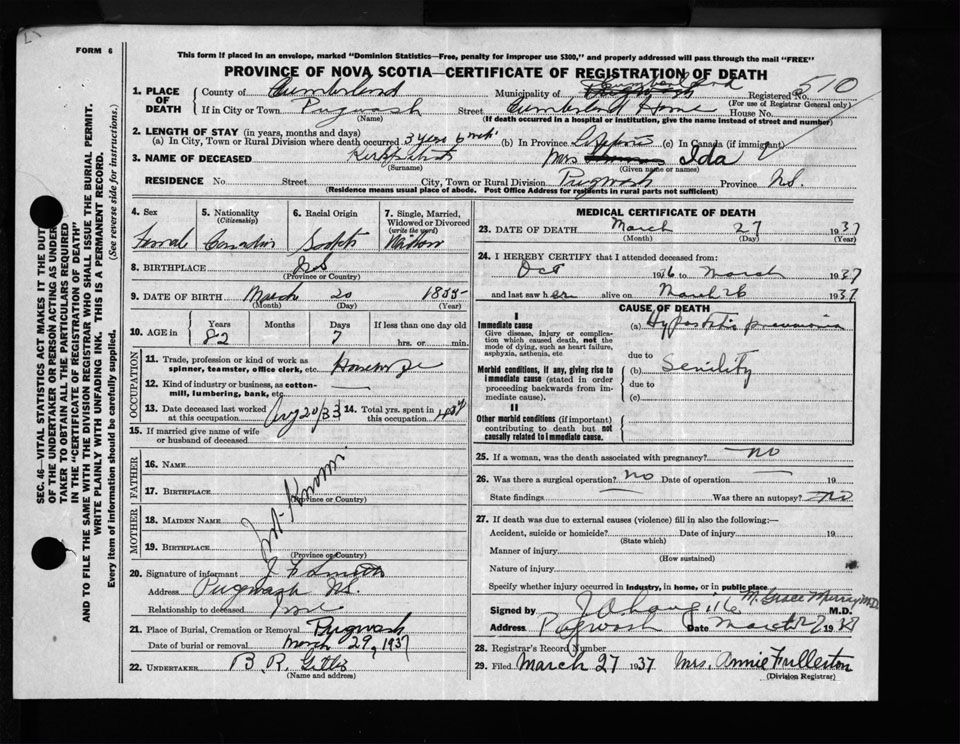 FORM 6
This form if placed in an envelope, marked "Dominion Statistics—Free, penalty for improper use $300," and properly addressed will pass through the mail "FREE"
PROVINCE OF NOVA SCOTIA—CERTIFICATE OF REGISTRATION OF DEATH
SEC. 46—VITAL STATISTICS ACT MAKES IT THE DUTY
OF THE UNDERTAKER OR PERSON ACTING AS UNDER-
TAKER TO OBTAIN ALL THE PARTICULARS REQUIRED
IN THE "CERTIFICATE OF REGISTRATION OF DEATH"
AND TO FILE THE SAME WITH THE DIVISION REGISTRAR WHO SHALL ISSUE THE BURIAL PERMIT.
WRITE PLAINLY WITH UNFADING INK. THIS IS A PERMANENT RECORD.
Every item of information should be carefully supplied. (See reverse side for instructions.)
1. PLACE OF DEATH County of Cumberland Municipality of Cumberland Registered No. 510
(For use of Registrar General only)
If in City or Town Pugwash Street Cumberland Home House No.
(Name) (If death occurred in a hospital or institution, give the name instead of street and number)
2. LENGTH OF STAY (in years, months and days)
(a) In City, Town or Rural Division where death occurred 3 years 6 mths (b) In Province (c) In Canada (if immigrant)
3. NAME OF DECEASED Mrs Ida
(Surname) (Given name or names)
RESIDENCE No Street City, Town or Rural Division Pugwash Province N.S.
(Residence means usual place of abode. Post Office Address for residents in rural parts not sufficient)
4. Sex Female
5. Nationality (Citizenship) Canadian
6. Racial Origin Scotch
7. Single, Married, Widowed or Divorced (write the word) Widow
8. BIRTHPLACE N.S
(Province or Country)
9. DATE OF BIRTH March 20 1855
(Month) (Day) (Year)
10. AGE in Years 82 Months Days 7 If less than one day old hrs. or min.
OCCUPATION
11. Trade, profession or kind of work as spinner, teamster, office clerk, etc.
12. Kind of industry or business, as cotton-mill, lumbering, bank, etc. —
13. Date deceased last worked at this occupation Aug 20/33 14. Total yrs. spent in this occupation
15. If married give name of wife or husband of deceased
FATHER
16. NAME
17. BIRTHPLACE
(Province or Country)
Not Known
MOTHER
18. MAIDEN NAME
19. BIRTHPLACE
(Province or Country)
20. Signature of informant J F Smith
Address Pugwash N.S.
Relationship to deceased
21. Place of Burial, Cremation or Removal Pugwash
Date of burial or removal March 29, 1937
22. UNDERTAKER B. R.
(Name and address)
MEDICAL CERTIFICATE OF DEATH
23. DATE OF DEATH March 27 1937
(Month) (Day) (Year)
24. I HEREBY CERTIFY that I attended deceased from:
Oct 1936 to March 1937
and last saw her alive on March 26 1937
CAUSE OF DEATH
I
Immediate cause
Give disease, injury or complication which caused death, not the mode of dying, such as heart failure, asphyxia, asthenia, etc
(a) Hypostatic pneumonia
due to
Morbid conditions, if any, giving rise to immediate cause (stated in order proceeding backwards from immediate cause).
(b) Senility
due to
(c)
II
Other morbid conditions (if important) contributing to death but not causally related to immediate cause.
25. If a woman, was the death associated with pregnancy? no
26. Was there a surgical operation? no Date of operation 19
State findings Was there an autopsy? no
27. If death was due to external causes (violence) fill in also the following:—
Accident, suicide or homicide? Date of injury 19
(State which)
Manner of injury
(How sustained)
Nature of injury
Specify whether injury occurred in industry, in home, or in public place
Signed by M. Grace Murray M.D.
M.D.
Address Pugwash Date March
28. Registrar's Record Number
29. Filed March 27 1937 Mrs. Annie Fullerton
(Division Registrar)